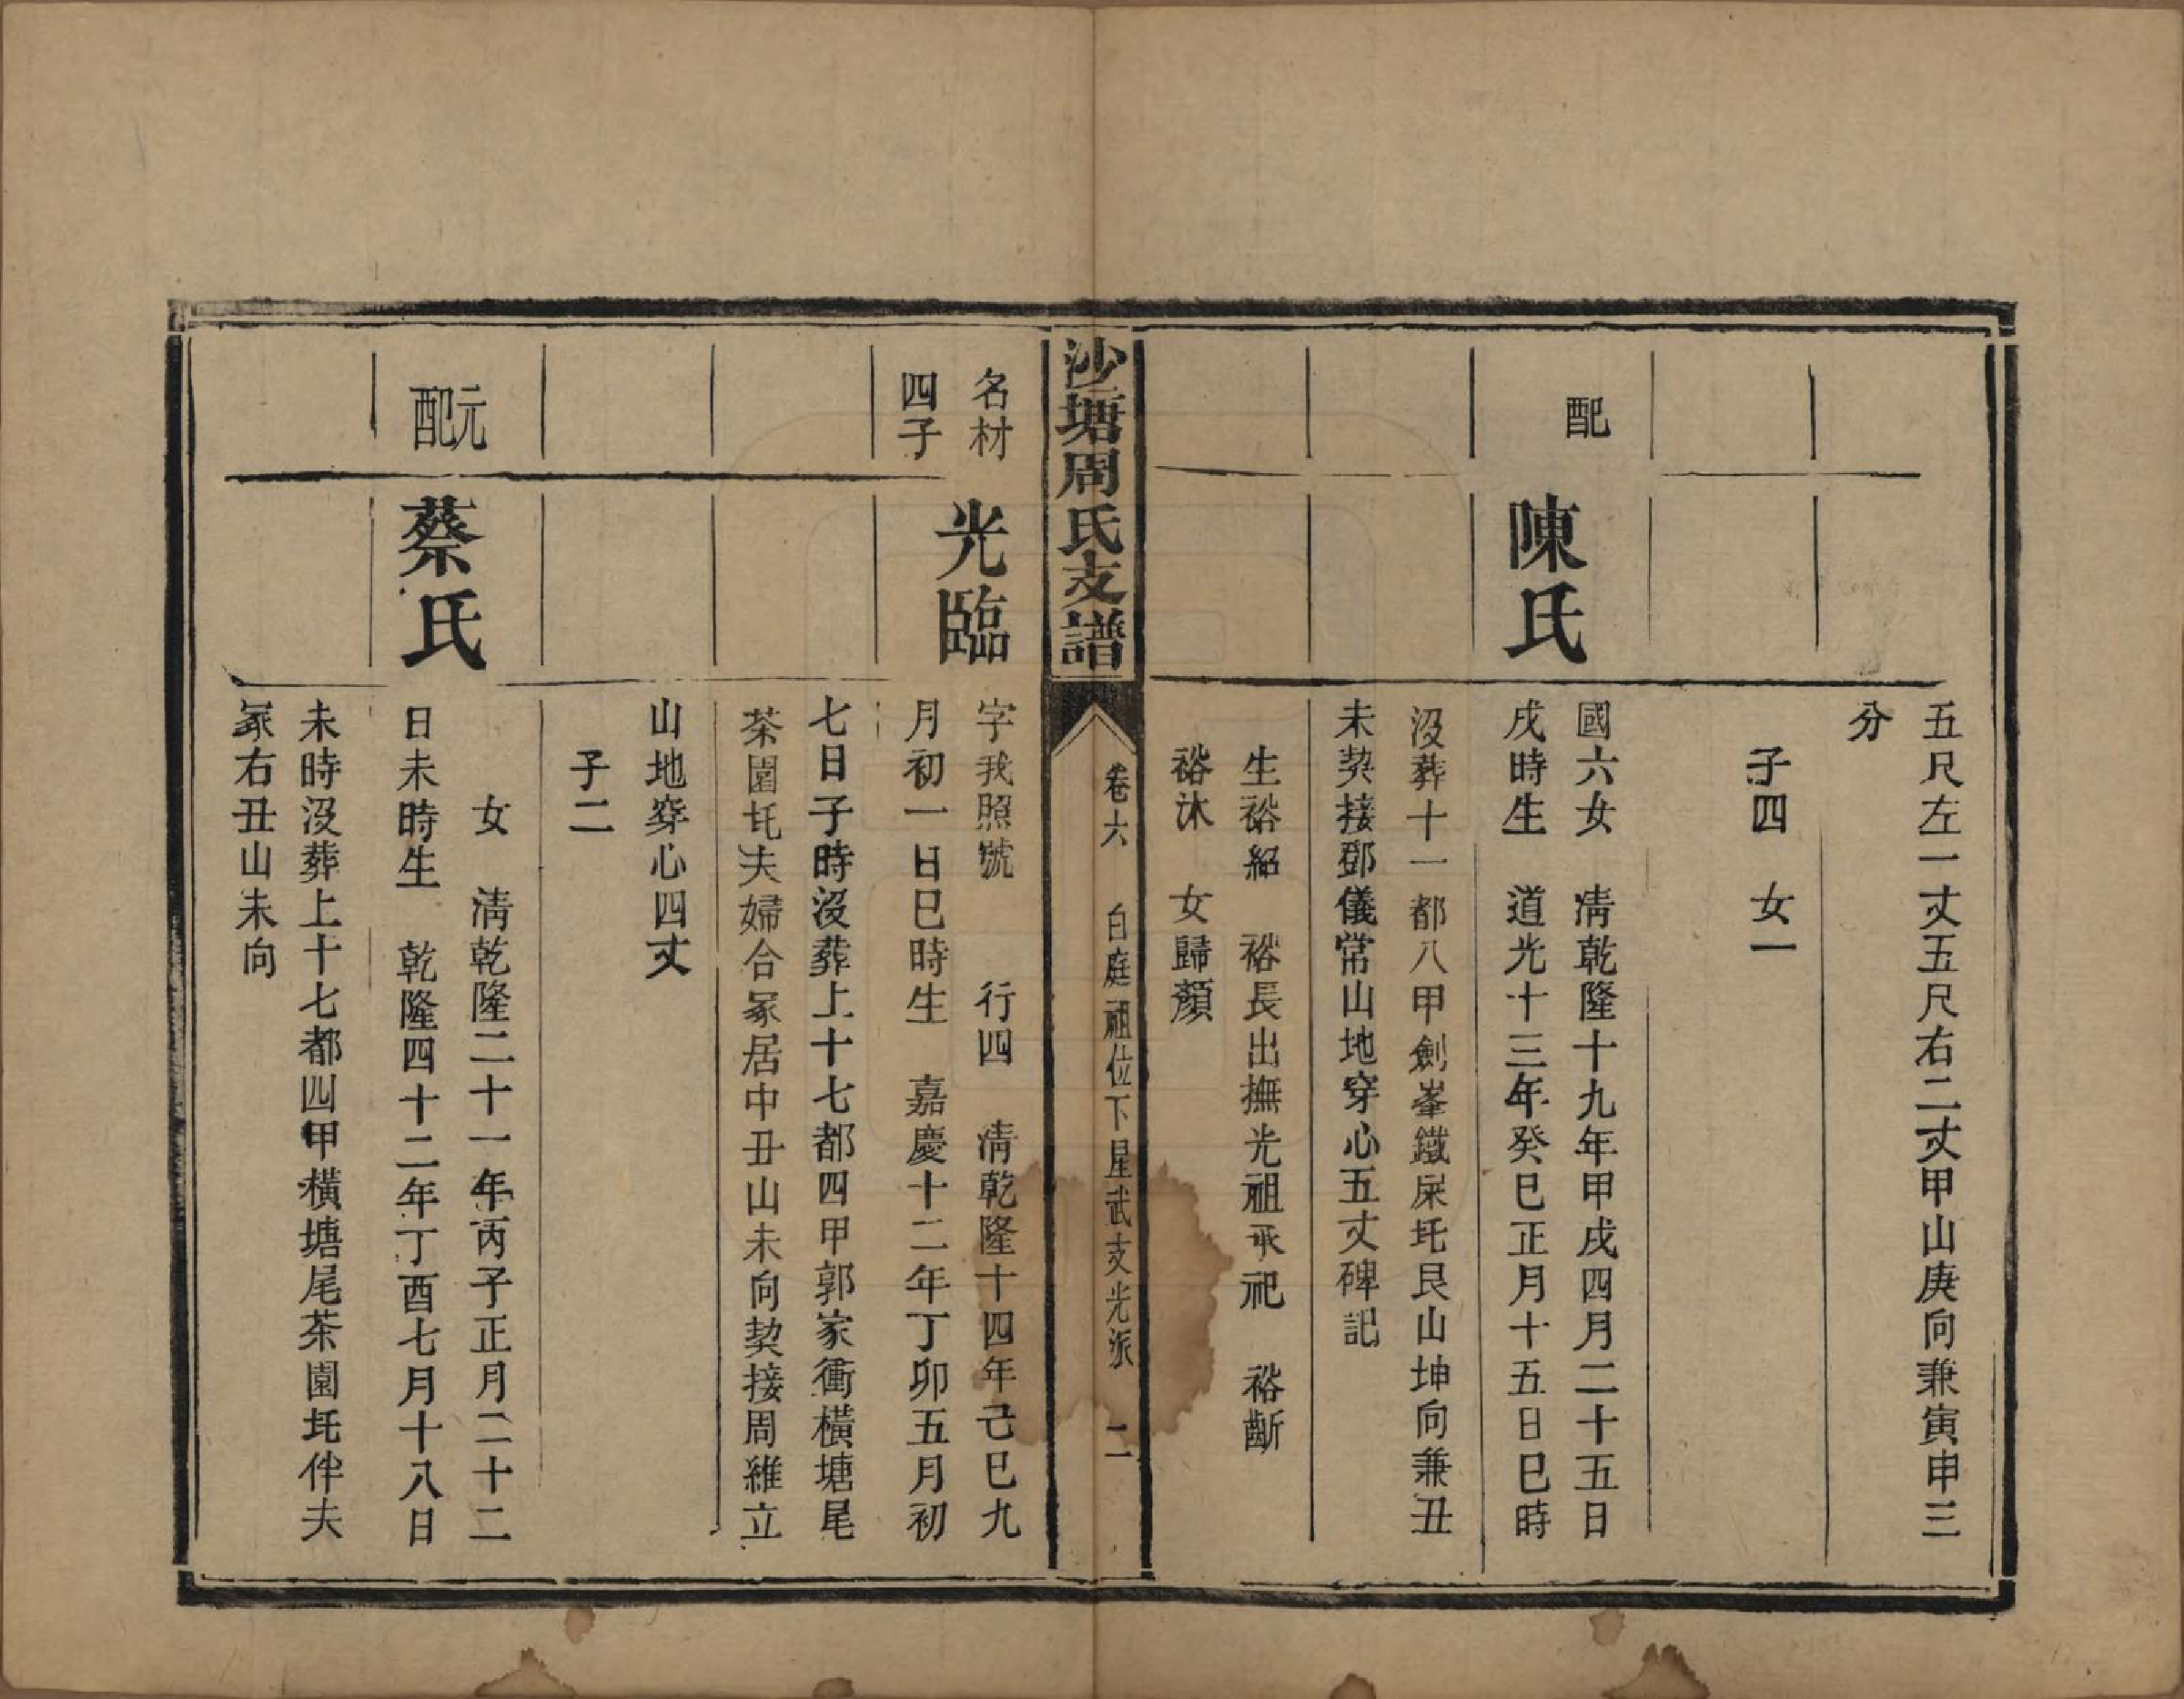 五尺左一丈五尺右二丈甲山庚向兼寅申三
分
子四　女一
配
陳氏
國六女　清乾隆十九年甲戌四月二十五日
戌時生　道光十三年癸巳正月十五日巳時
沒葬十一都八甲劍峯鐵屎坉艮山坤向兼丑
未契接鄧儀常山地穿心五丈碑記
生裕紹　裕長出撫光祖承祀　裕斷
裕沐　女歸顏
沙塘周氏支譜
卷六　白庭祖位下星武支光派　二
名材
四子
光臨
字我照號　　行四　清乾隆十四年己巳九
月初一日巳時生　嘉慶十二年丁卯五月初
七日子時沒葬上十七都四甲郭家衝橫塘尾
茶園坉夫婦合冢居中丑山未向契接周維立
山地穿心四丈
子二
元配
蔡氏
女　清乾隆二十一年丙子正月二十二
日未時生　乾隆四十二年丁酉七月十八日
未時沒葬上十七都四甲橫塘尾茶園坉伴夫
冢右丑山未向